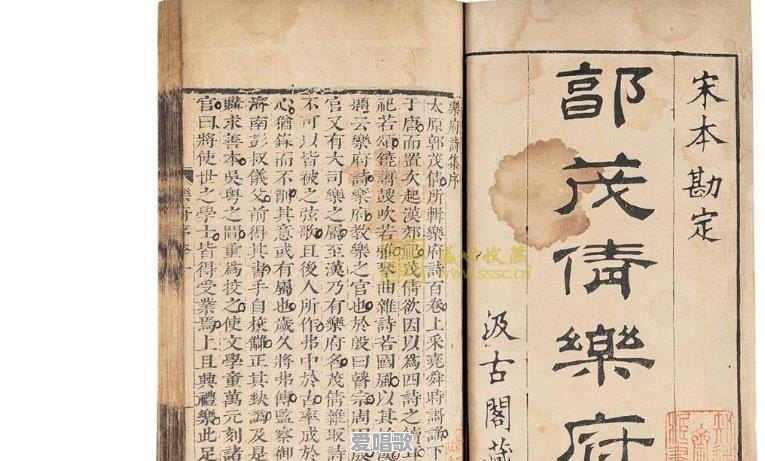 宋本勘定
郭茂倩樂府
汲古閣藏
樂府詩集序
太原郭茂倩所輯樂府詩百卷上采堯舜時謌謡下
于唐而置次起漢郊祀茂倩欲因以爲四詩之續
祀若頌鐃謌鼓吹若雅琴曲雜詩若國風以其
題云樂府詩樂府教樂之官也於殷曰瞽宗周因
官又有大司樂之屬至漢乃有樂府名茂倩雜取詩
不可以皆被之弦歌且後人所作弗中於古率成於
心猶錄而不削其意或有屬也歳久將弗傳監察御
濟南彭叔儀父前得其書手自校讎正其缺譌及是
購求善本吳粤之間重爲校之使文學童萬元刻諸
官曰將使世之學士皆得受業焉上且興禮樂此足
樂府序
www.sssc.cn
爱唱歌